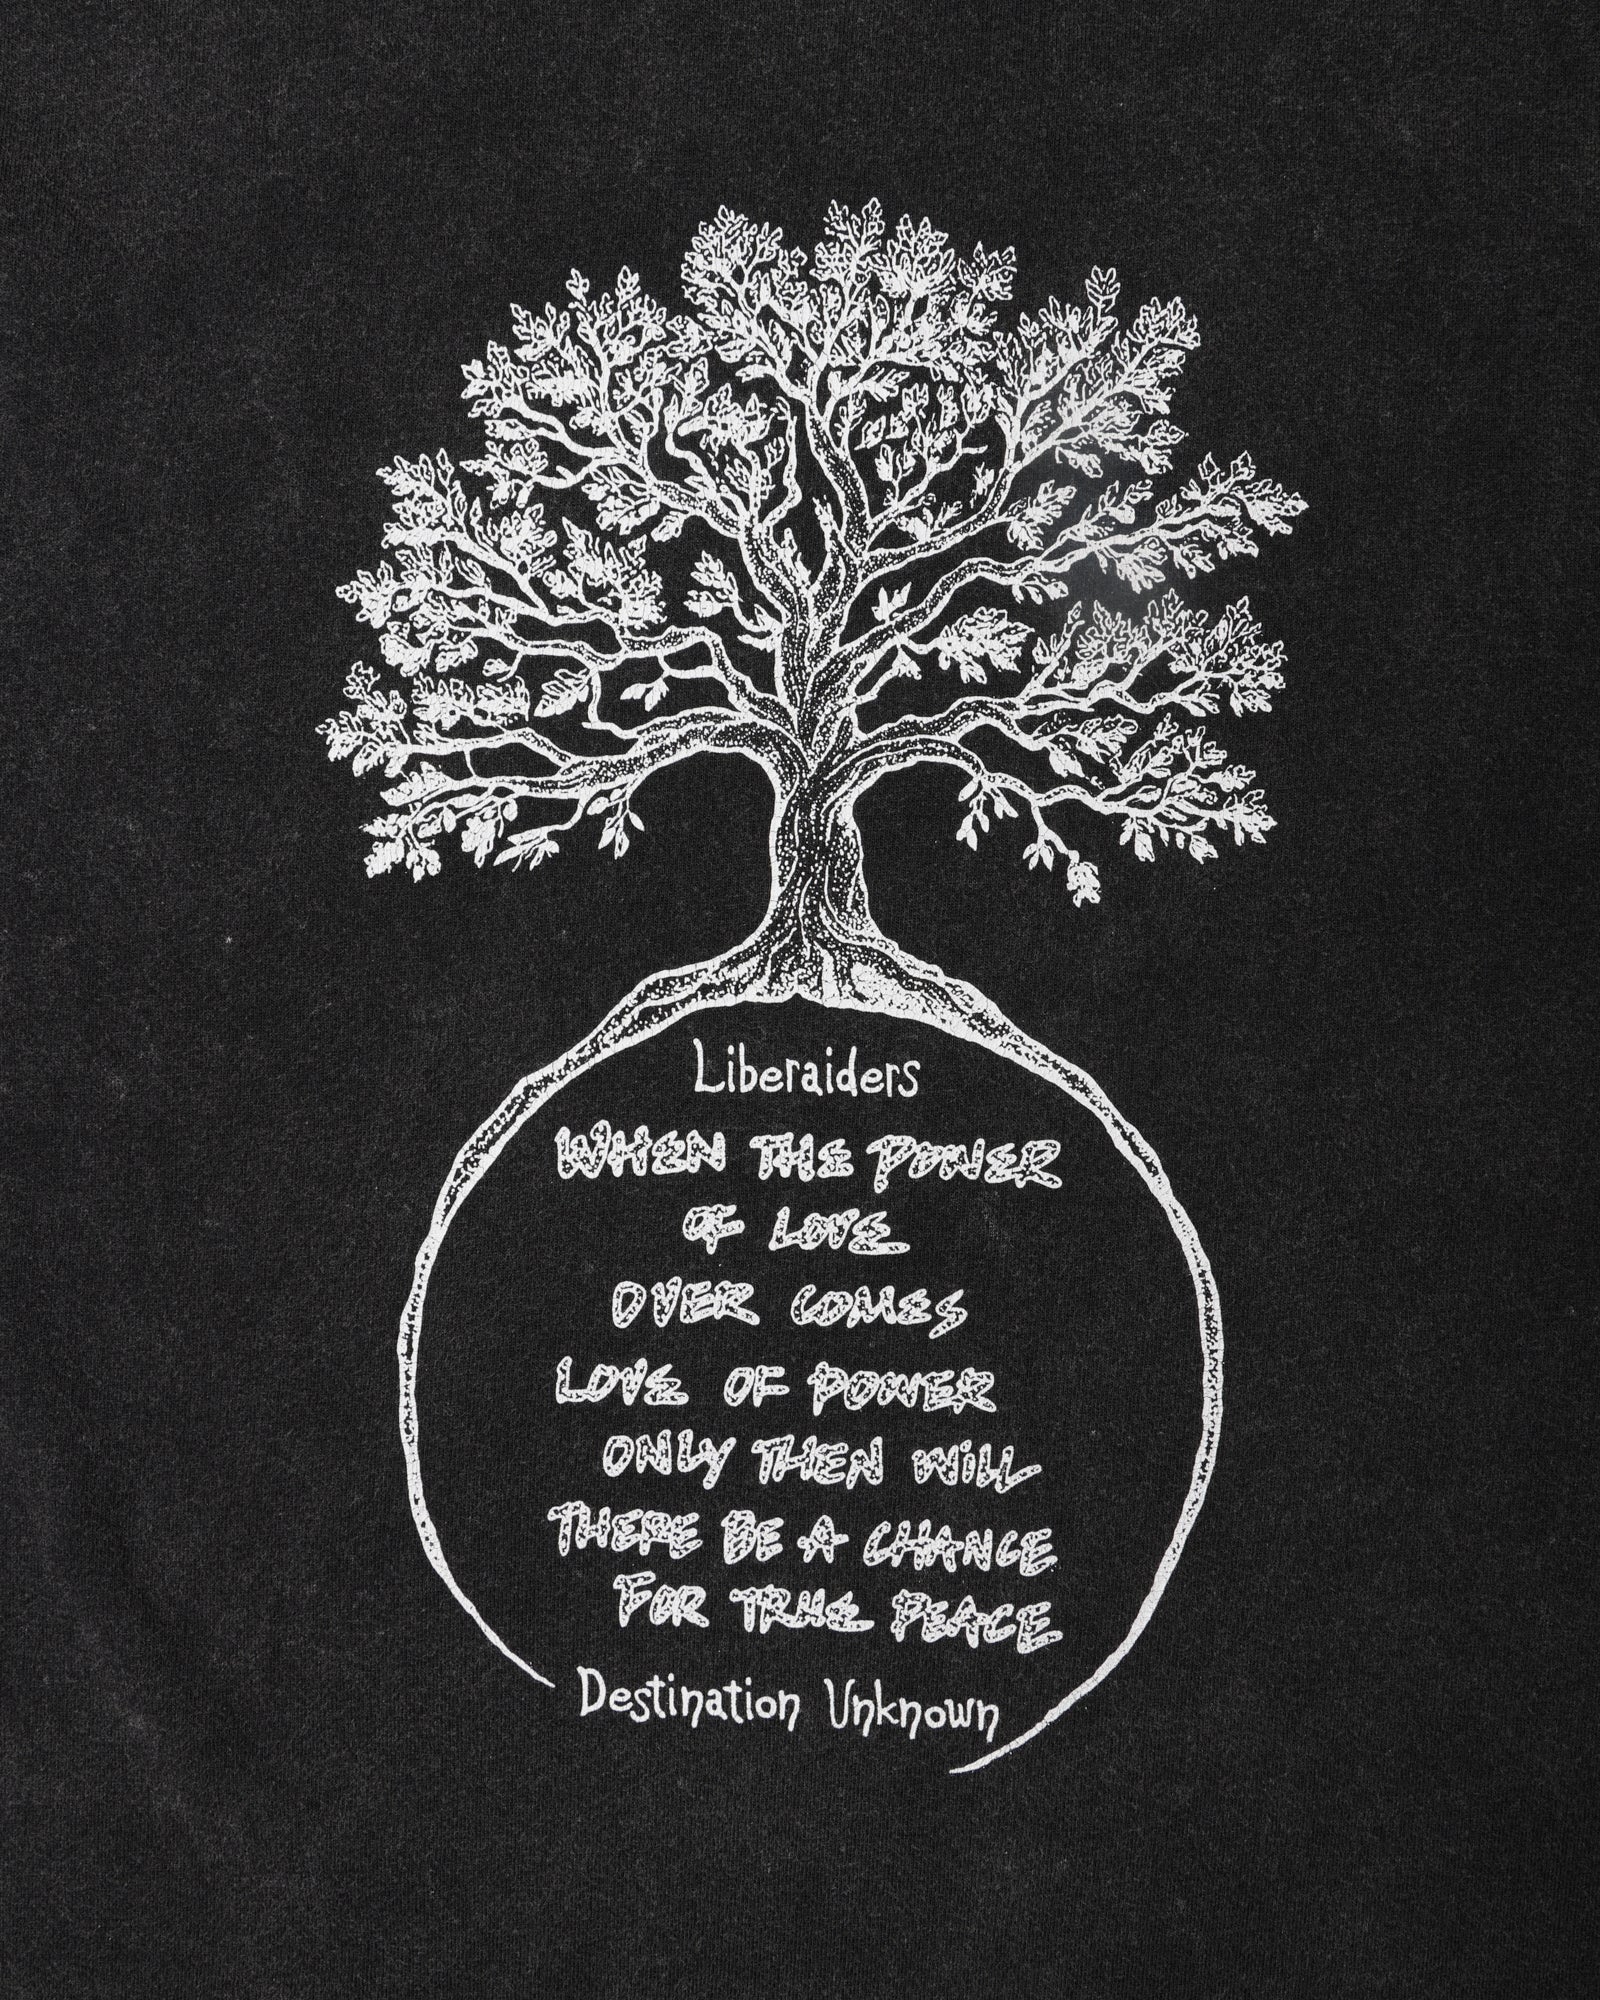 Liberaiders
WHEN THE POWER
OF LOVE
OVER COMES
LOVE OF POWER
ONLY THEN WiLL
THERE BE A CHANCE
FOR TRUE PEACE
Destination Unknown